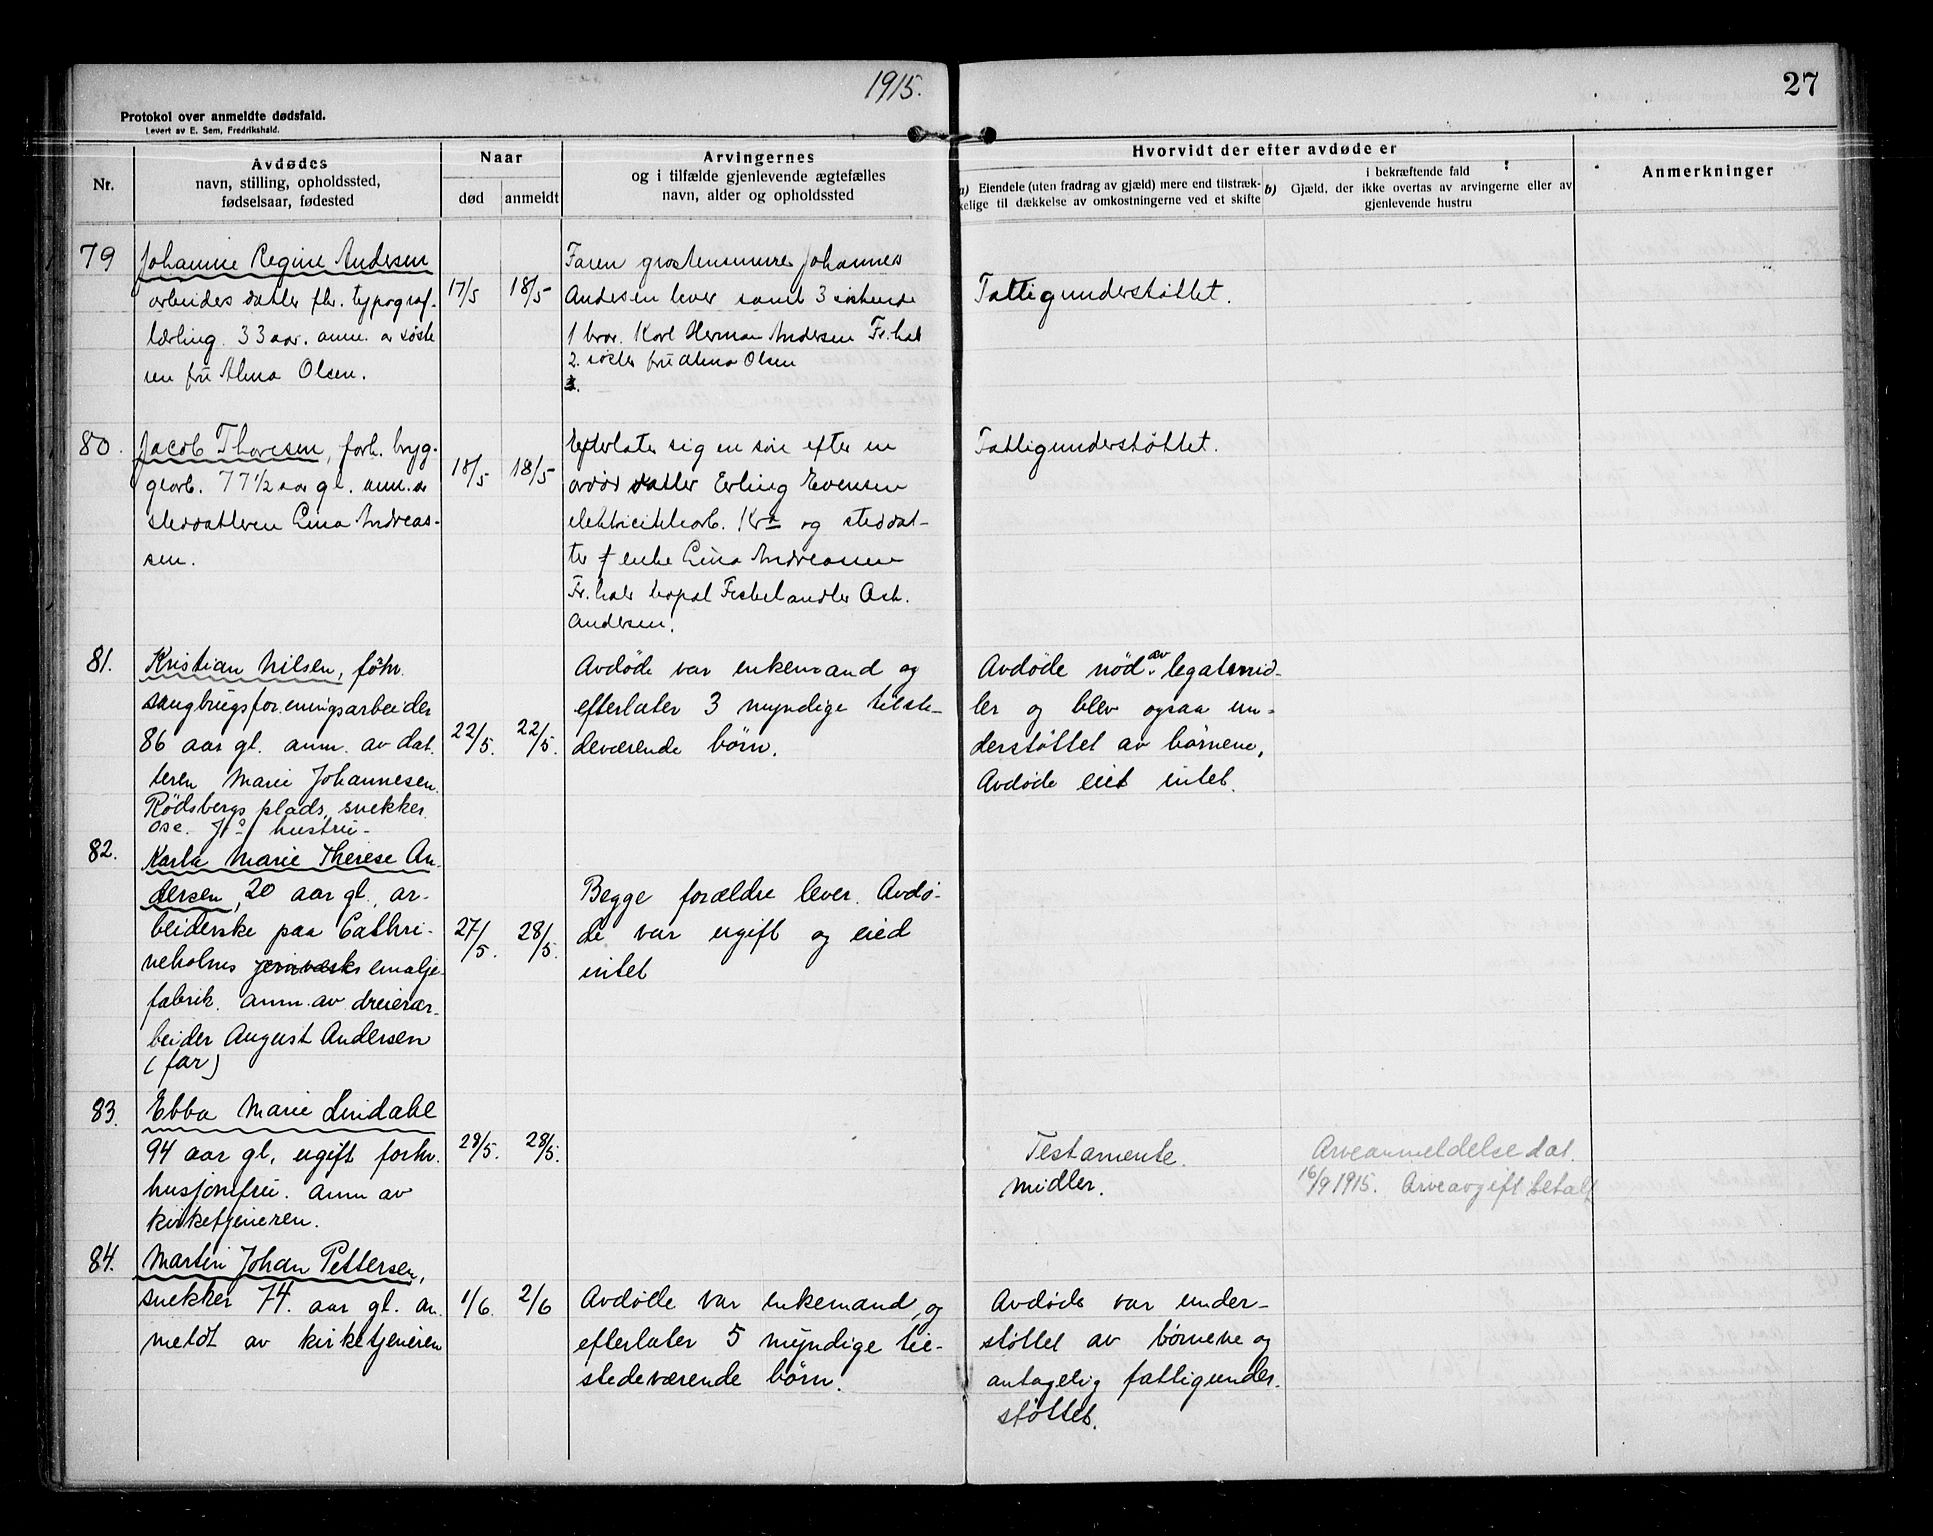 1915.
27
Protokol over anmeldte dødsfald.
Levert av E. Sem, Fredrikshald.
Nr.
Avdødes
navn, stilling, opholdssted,
fødselsaar, fødested
Naar
død
anmeldt
Arvingernes
og i tilfælde gjenlevende ægtefælles
navn, alder og opholdssted
Hvorvidt der efter avdøde er
a) Eiendele (uten fradrag av gjæld) mere end tilstræk-
kelige til dækkelse av omkostningerne ved et skifte
b)
i bekræftende fald
Gjæld, der ikke overtas av arvingerne eller av
gjenlevende hustru
Anmerkninger
79
Johanne Regine Andersen
arbeides datter fhr. typograf-
lærling. 33 aar. anm. av søste
ren fru Alma Olsen.
17/5
18/5
Faren Johannes
Andersen lever samt 3 søskende
1 bror. Karl Herman Andersen Fr.hald
2. søster fru Alma Olsen
3.
Fattigunderstøttet.
80.
Jacob Thoresen, forh. bryg-
gearb. 77 1/2 aar gl. anm. av
steddatteren Lina Andreas-
sen.
18/5
18/5
Efterlater sig en søn efter en
avdød datter Erling Evensen
elektricitetsarb. Kra og steddat-
ter enke Lina Andreassen
Fr.hald Fiskehandler
Andersen.
Fattigunderstøttet.
81.
Kristian Nilsen, forhv.
saugbrugsforeningsarbeider
86 aar gl. anm. av dat.
teren Marie Johannesen.
Rødsbergs plads, snekker
Osc. Js hustru-
22/5.
22/5.
Avdøde var enkemand og
efterlater 3 myndige tilste-
deværende børn.
Avdøde nød av legatmid-
ler og blev ogsaa un-
derstøttet av børnene,
Avdøde eiet intet.
82.
Karla Marie Therese An-
dersen, 20 aar gl., ar-
beiderske paa Cathri-
neholms jernverks emalje-
fabrik. anm. av dreierar-
beider August Andersen
(far)
27/5.
28/5.
Begge forældre lever. Avdø-
de var ugift og eied
intet
83.
Ebba Marie Lindahl
94 aar gl, ugift forhv.
husjomfru. anm av
kirketjeneren.
28/5.
28/5.
Testamente.
midler.
Arveanmeldelse dat.
16/9 1915. Arveavgift betalt
84.
Martin Johan Pettersen,
snekker 74. aar gl. an-
meldt av kirketjeneren
1/6.
2/6
Avdøde var enkemand, og
efterlater 5 myndige til-
stedeværende børn.
Avdøde var under-
støttet av børnene og
antagelig fattigunder-
støttet.